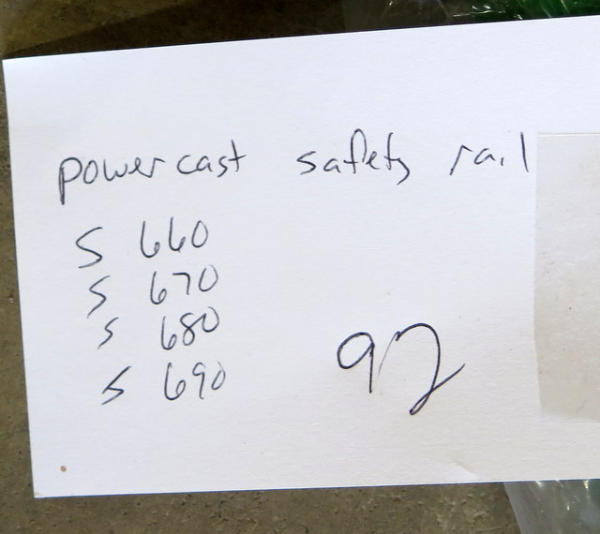 power cast safety rail
S 660
S 670
S 680
S 690
92